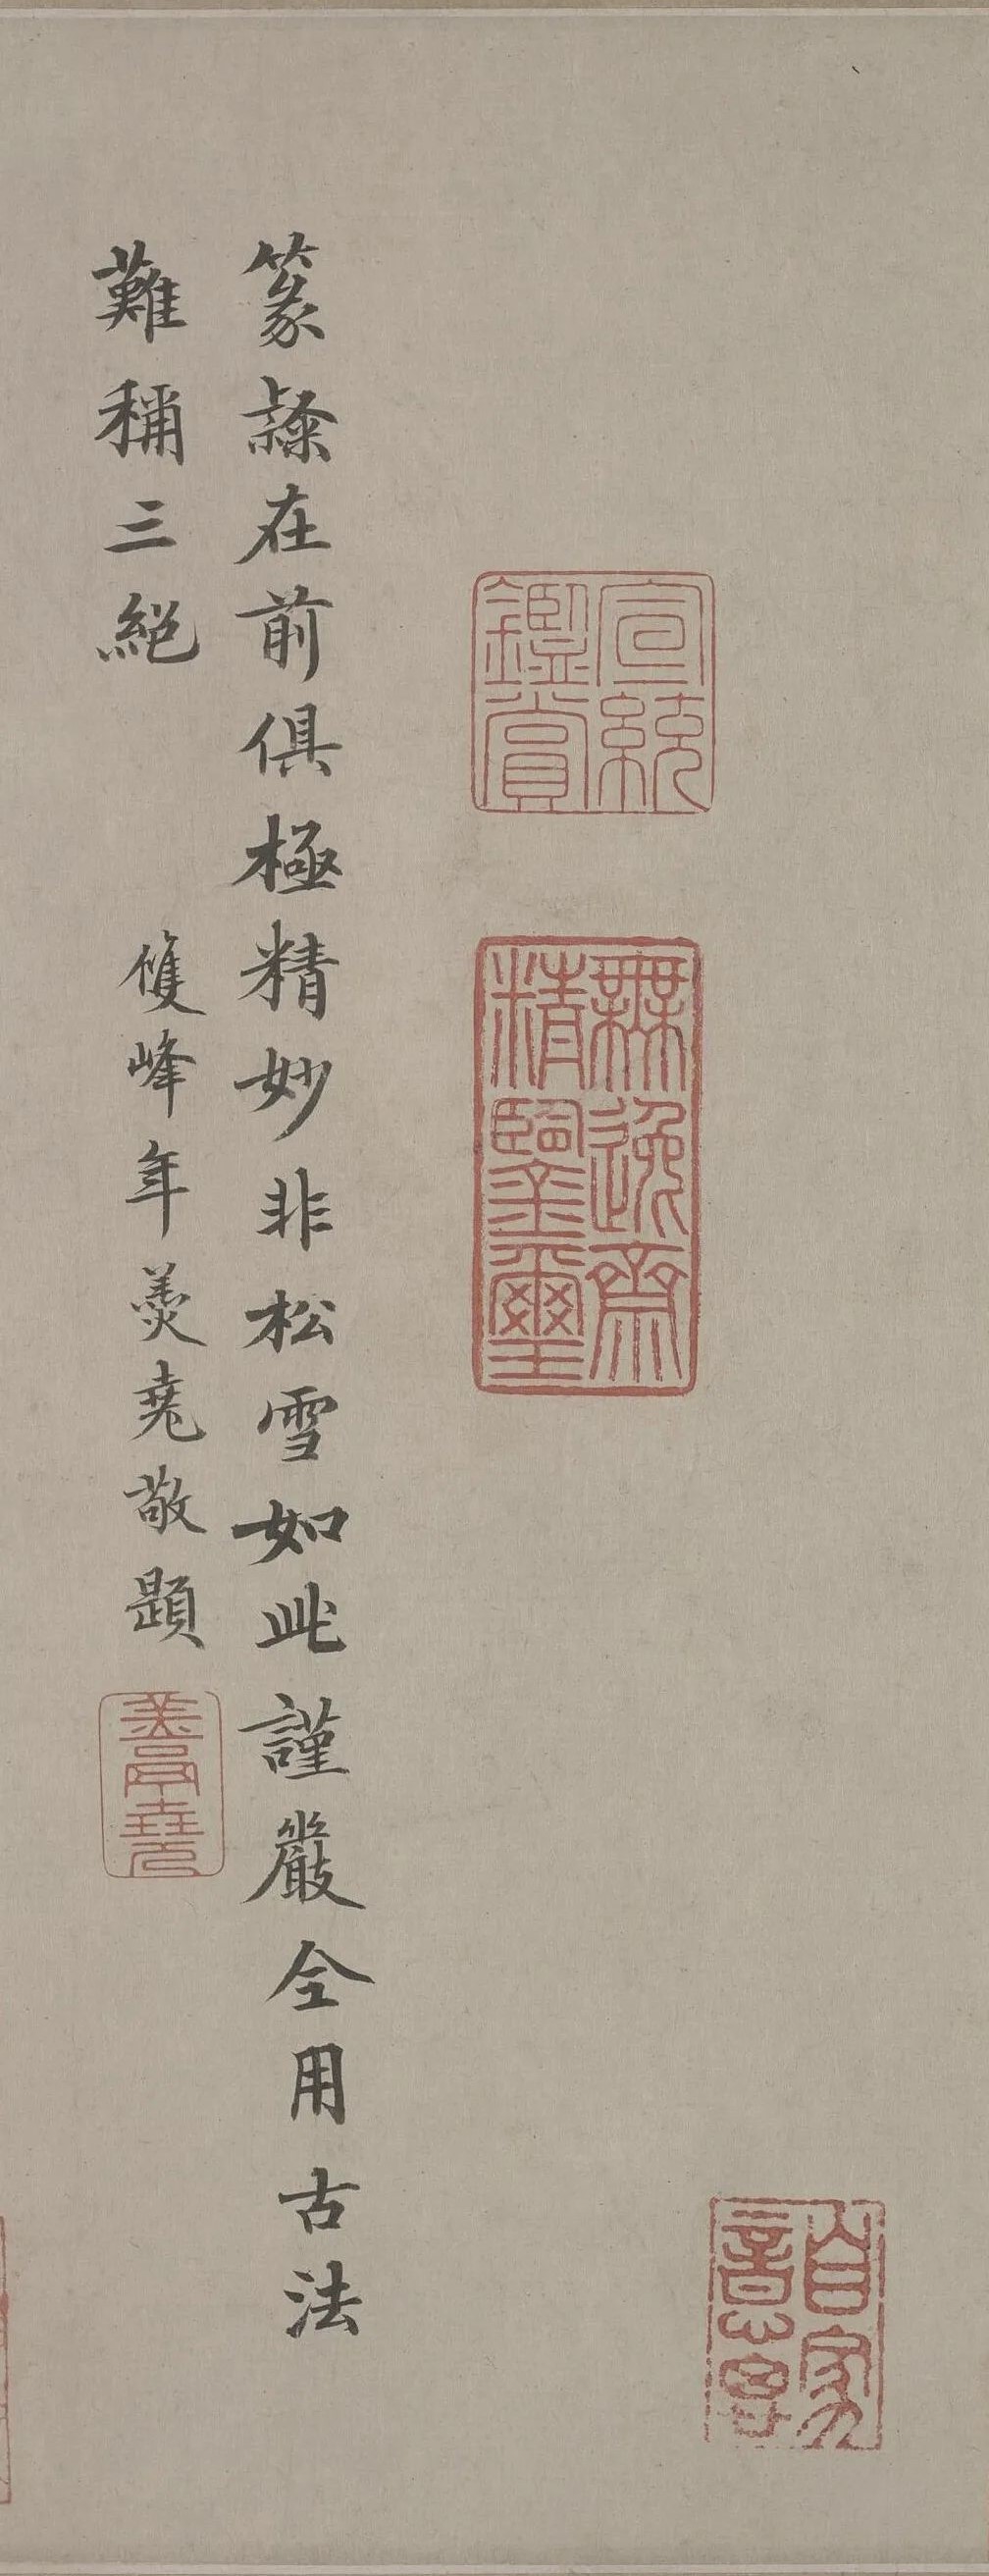 宣統鑑賞
無逸齋精鑒璽
篆隸在前俱極精妙非松雪如此謹嚴全用古法
難稱三絕
雙峰年羹堯敬題
羹堯